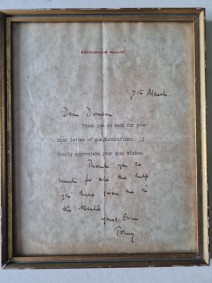 BUCKINGHAM PALACE
7th March
Dear Duncan
Thank you so much for your
kind letter of congratulations. I
deeply appreciate your good wishes.
Thank you so
much for all the help
you have given me in
the
Yours Ever
Tony